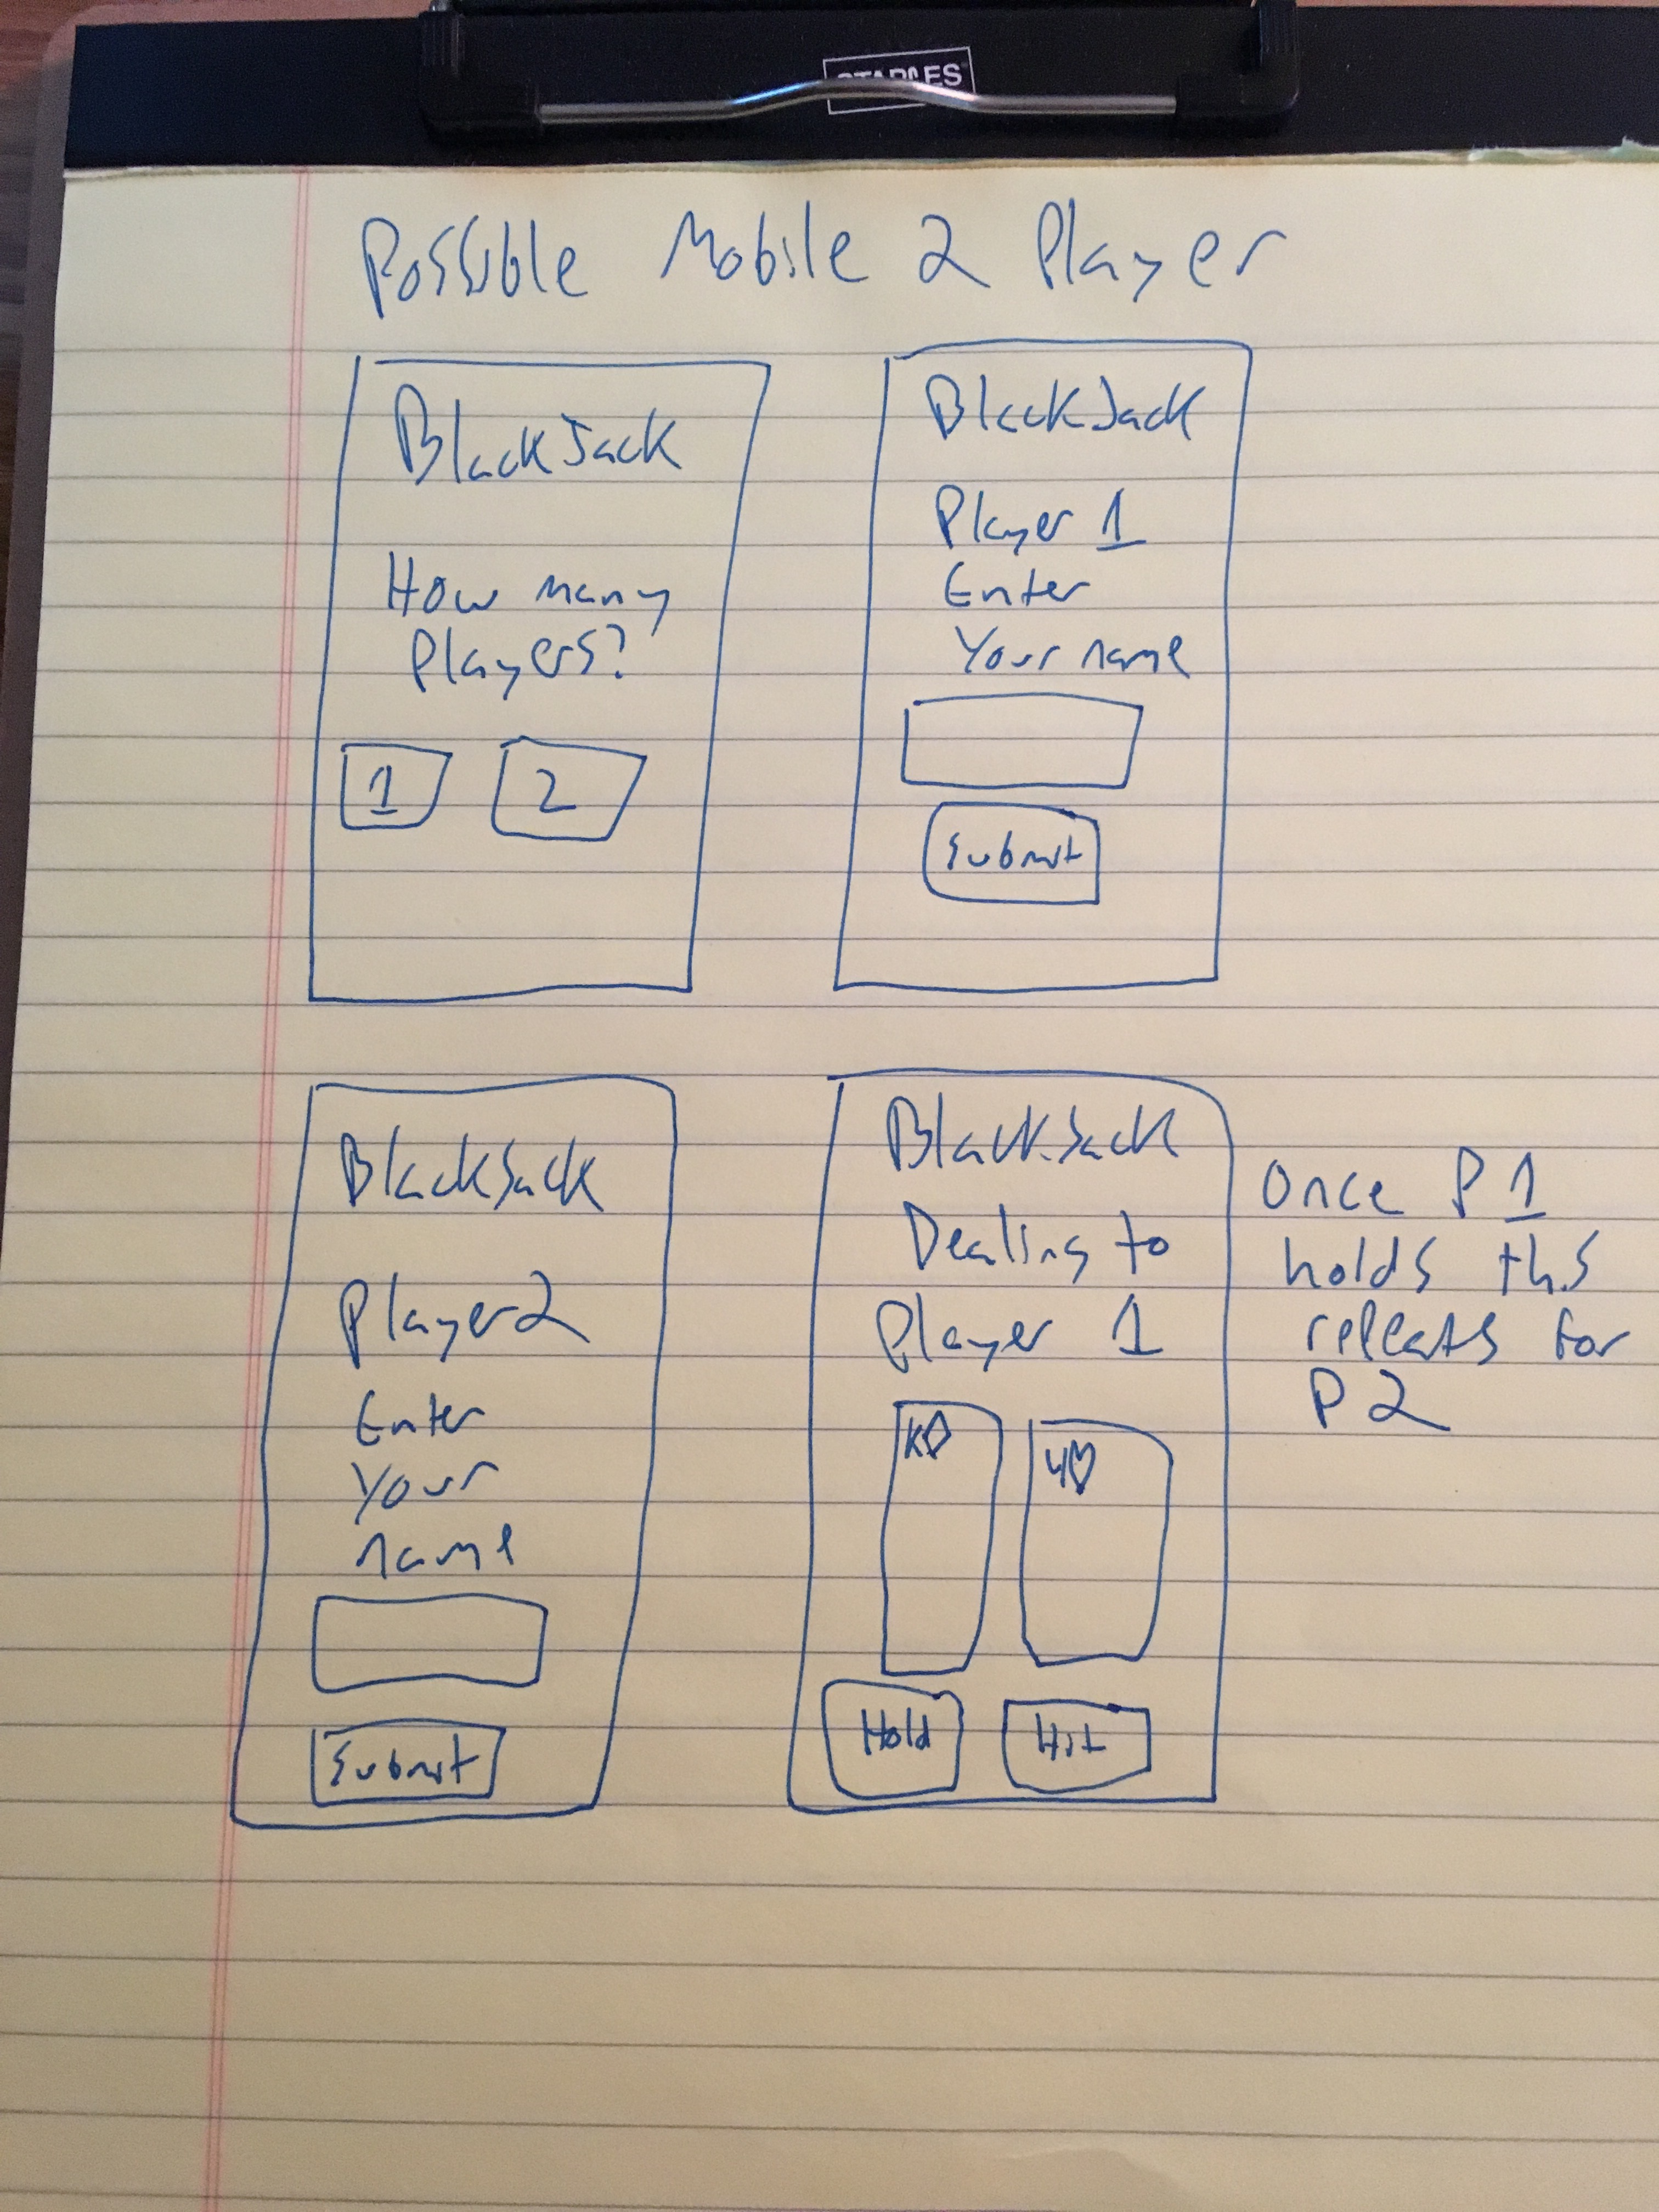 STAPLES
Possible Mobile 2 Player
BlackJack
How many
players?
1 2
BlackJack
Player 1
Enter
Your name
Submit
BlackJack
Player 2
Enter
Your
name
Submit
BlackJack
Dealing to
Player 1
K♢ 4♡
Hold Hit
Once P 1
holds this
repeats for
P 2